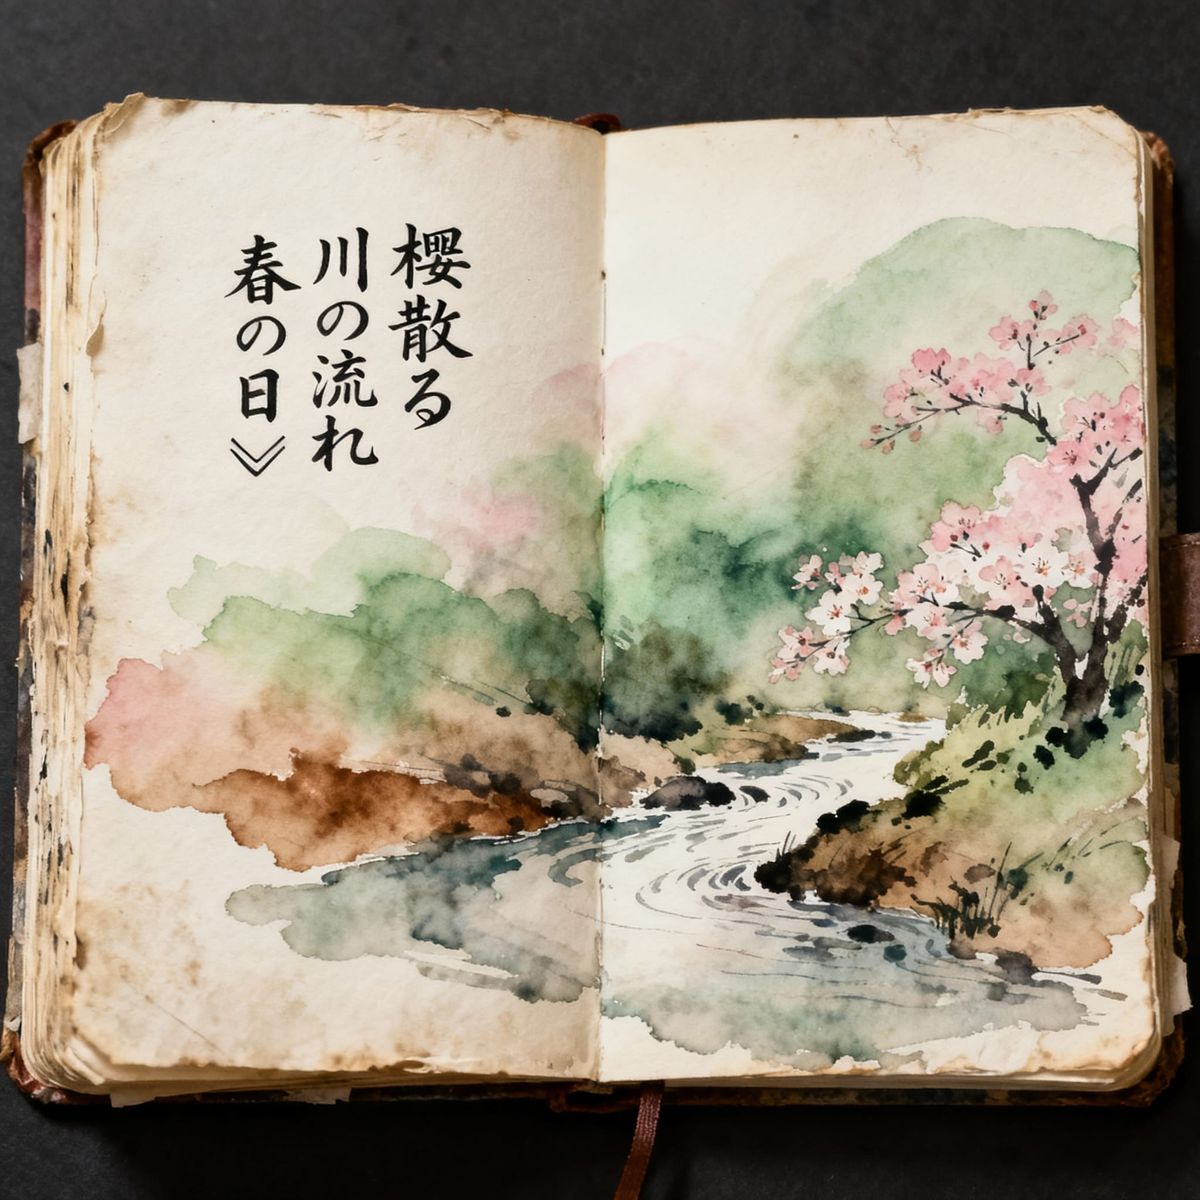 櫻散る
川の流れ
春の日》